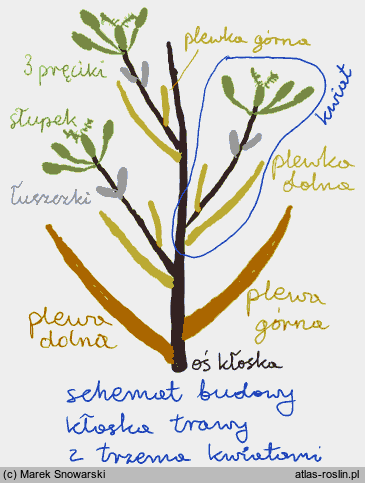 plewka górna
3 pręciki
kwiat
słupek
plewka
dolna
łuszczki
plewa
dolna
plewa
górna
oś kłoska
schemat budowy
kłoska trawy
z trzema kwiatami
(c) Marek Snowarski
atlas-roslin.pl